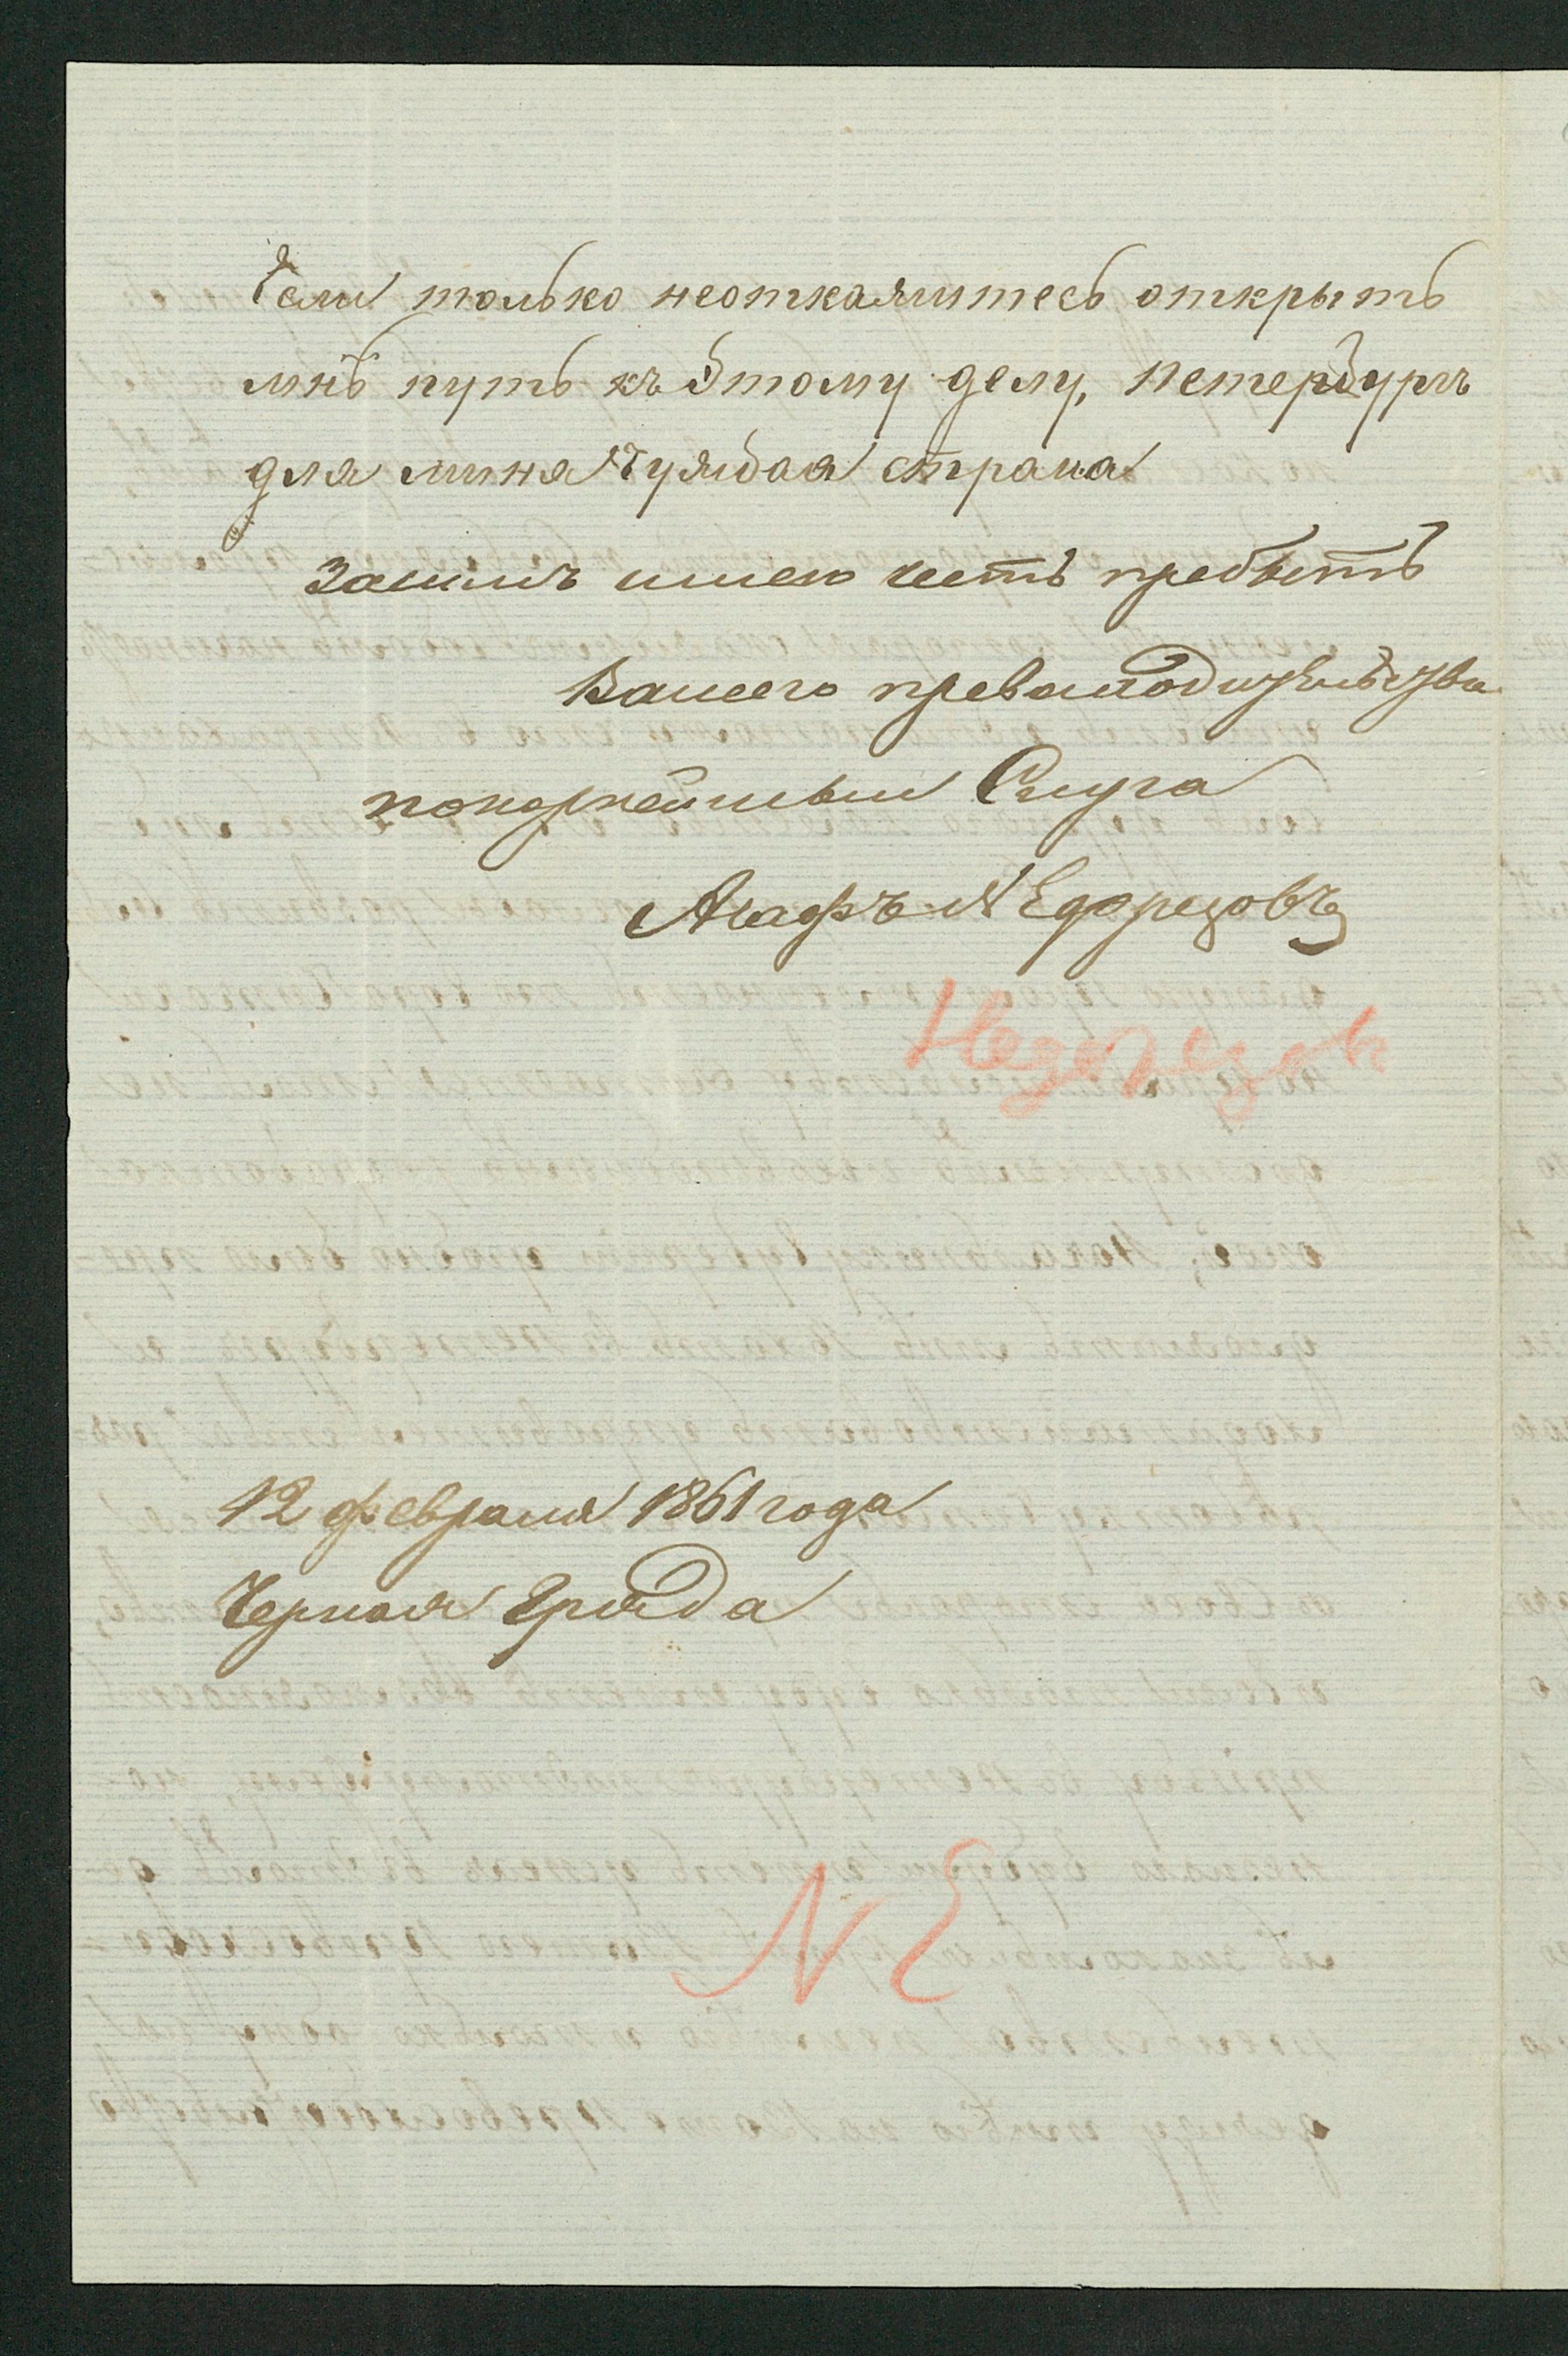 Если только неоткажитесь открыть
мнѣ путь къ этому делу, петербургъ
для миня Чужбая страна
засимъ имею честь пребыть
Вашего превасходительства
покорнейшыи Слуга
Агафъ Недорезовъ
Недорезов
12 февраля 1861 года
Черная Гряда